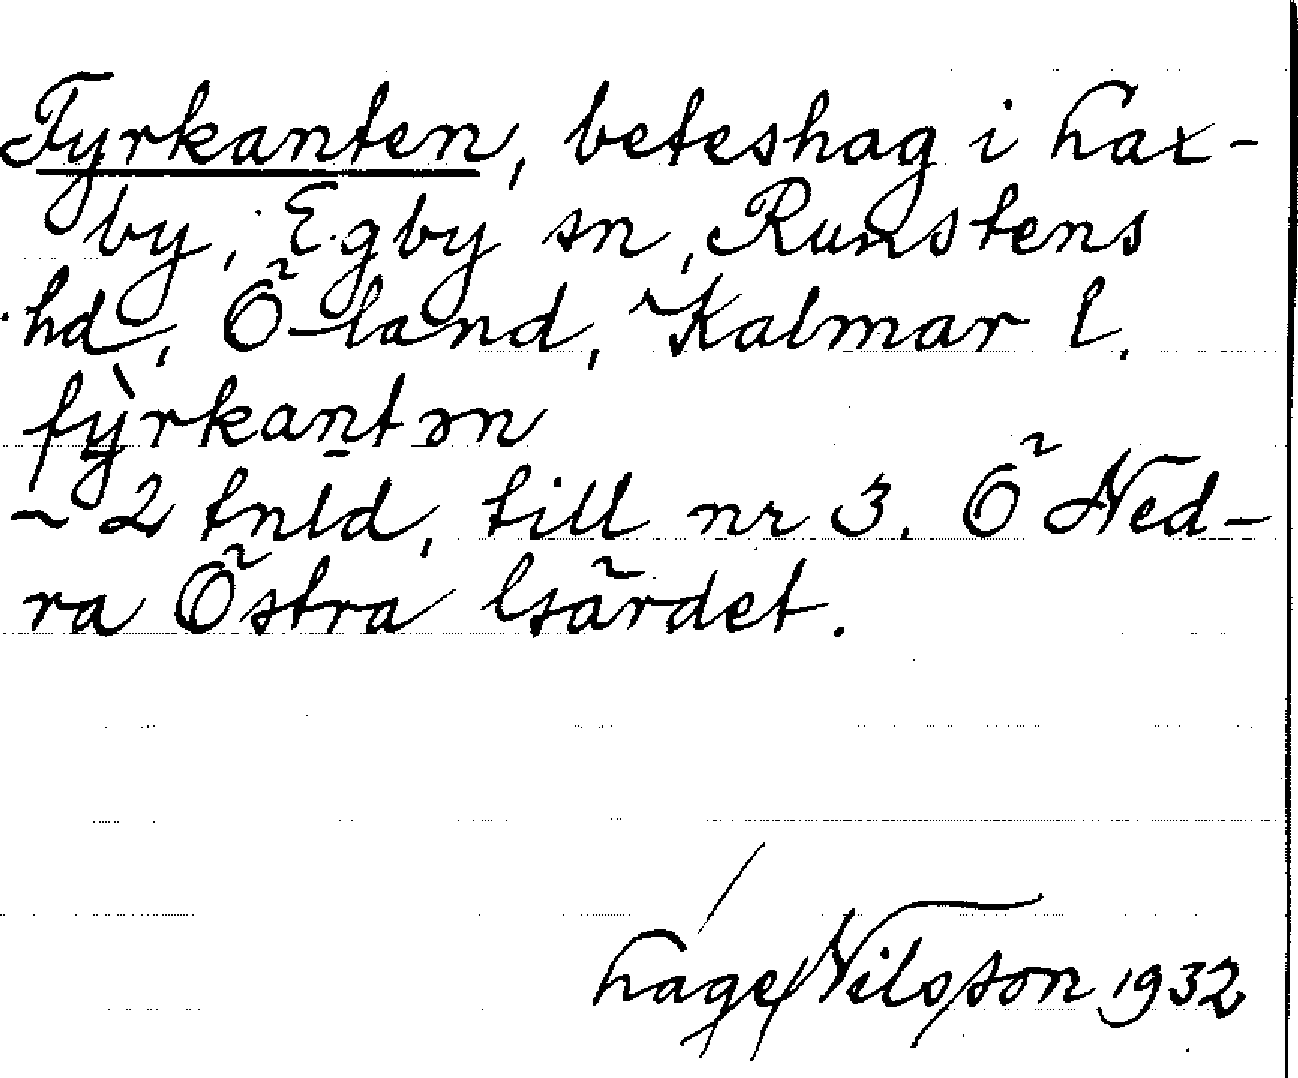 Fyrkanten, beteshag i Lax-
by, Egby sn, Runstens
hd, Öland, Kalmar l.
fỳrkan̲tən
~ 2 tnld, till nr 3. Ö Ned-
ra Östra Gärdet.
Lage Nilsson 1932